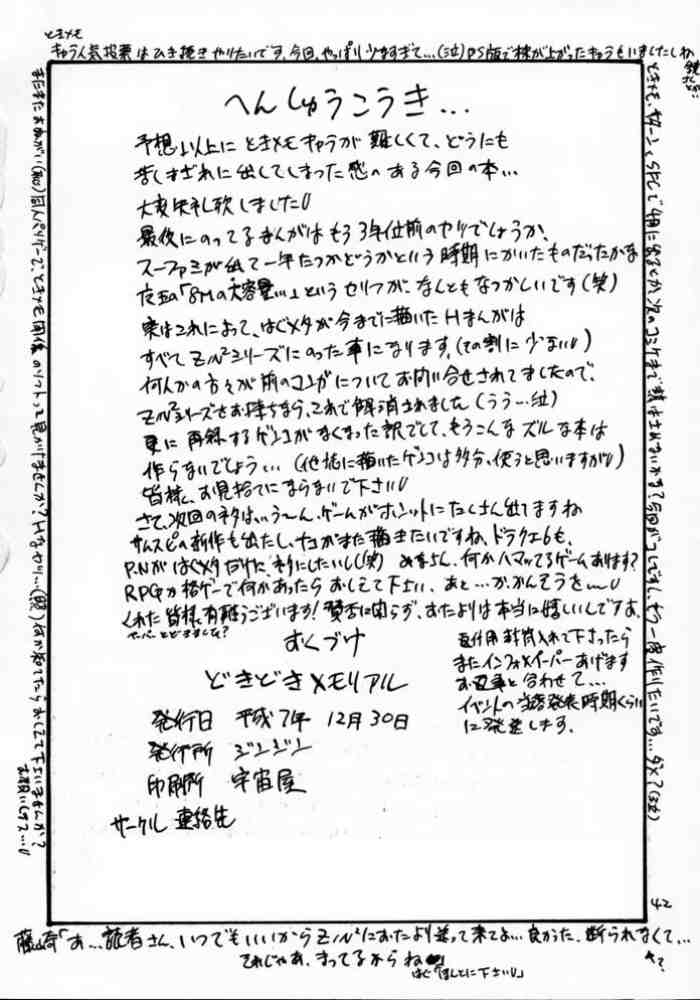 ときメモ
キャラ人気投票はひき続きやりたいです。今回、やっぱり少なすぎて…(泣)PS版で株が上がったキャラもいましたしね
へんしゅうこうき…
予想以上にときメモキャラが難しくて、どうにも
苦しまぎれに出してしまった感のある今回の本…
大変失礼致しました
最後にのってるまんがはもう3年位前のヤツでしょうか、
スーファミが出て一年たつかどうかという時期にかいたものだったかな
「8Mの大容量…」というセリフが、なんともなつかしいです(笑)
実はこれによって、はぐメタが今までに描いたHまんがは
すべてZ/N²シリーズにのった事になります。(その割に少ない)
何人かの方々が前のコピ本についてお問い合せされてましたので、
Z/N²シリーズをお持ちなら、これで解消されました(うう…泣)
更に再録するゲンコがなくなった訳でして、もうこんなズルな本は
作らないでしょう…(他誌に描いたゲンコは多分、使うと思いますが)
皆様、お見捨てにならないで下さい
さて、次回のネタは…う〜ん、ゲームがホントにたくさん出てますね
サムスピの新作も出たし、ナコがまた描きたいですね、ドラクエ6も、
P.Nがはぐメタだけに、ネタにしたいし(笑) みなさん、何かハマッてるゲームあります?
RPGか格ゲーで何かあったらおしえて下さい、あと…か、かんそうを
くれた皆様、有難うございます!賛否に関らず、おたよりは本当に嬉しいんですよ。
ペーパーとどきました?
おくづけ
どきどきメモリアル
発行日 平成7年 12月30日
発行所 ジンジン
印刷所 宇宙屋
サークル 連絡先
返信用封筒入れて下さったら
またインフォペーパーあげます
お返事と合わせて…
イベントの当落発表時期くらい
に発送します。
42
藤崎「あ…読者さん、いつでもいいからZ/N²におたより送って来てね…良かった、断られなくて…
それじゃあ、まってるからね」
はぐ「ほんとに下さい」
お願いします…